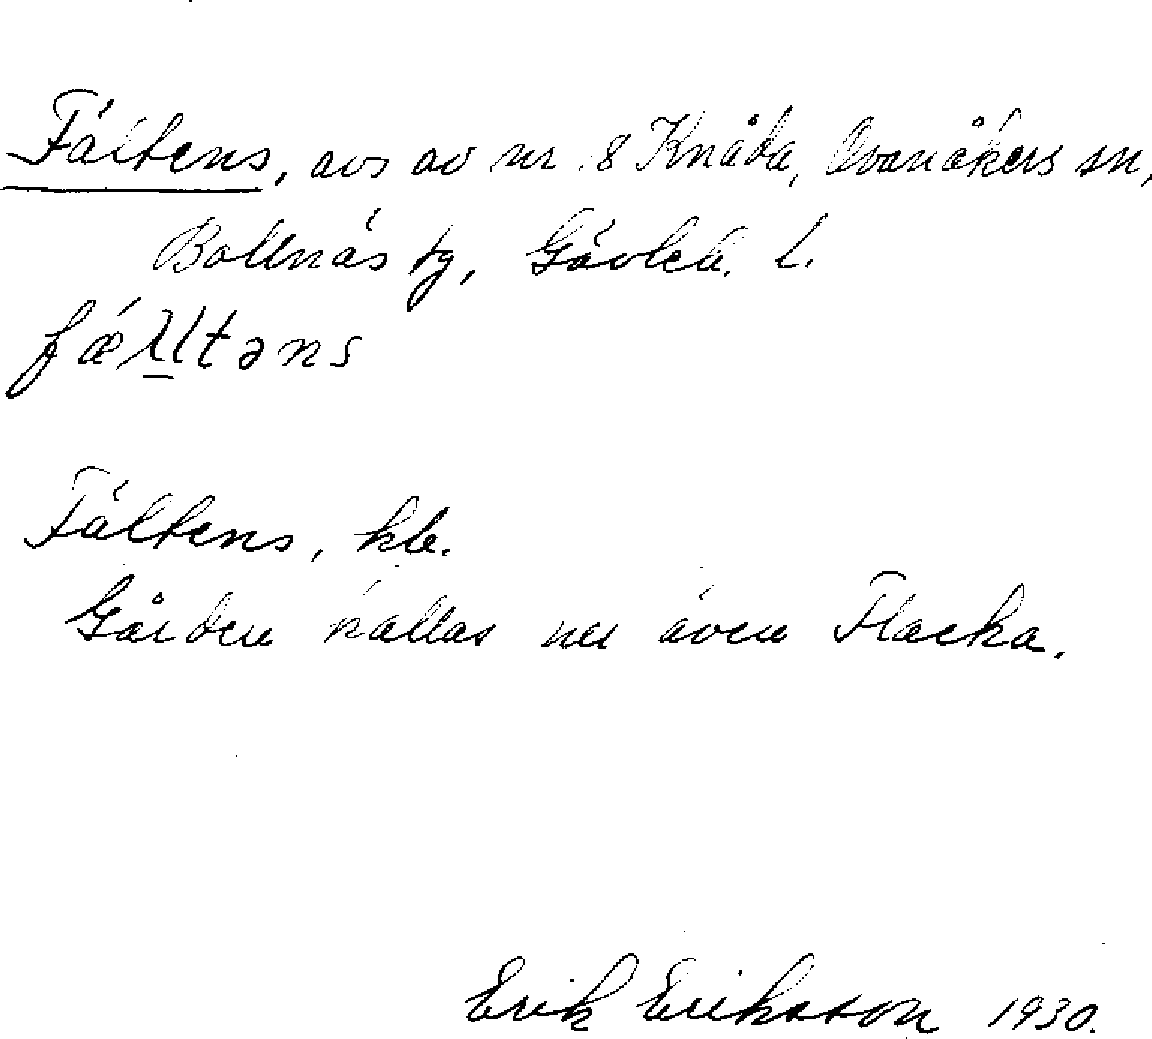 Fältens, avs av nr 8 Knåda, Ovanåkers sn,
Bollnäs tg, Gävleb. l.
Fältens, kb.
Gården kallas nu även Flacka.
Erik Eriksson 1930.